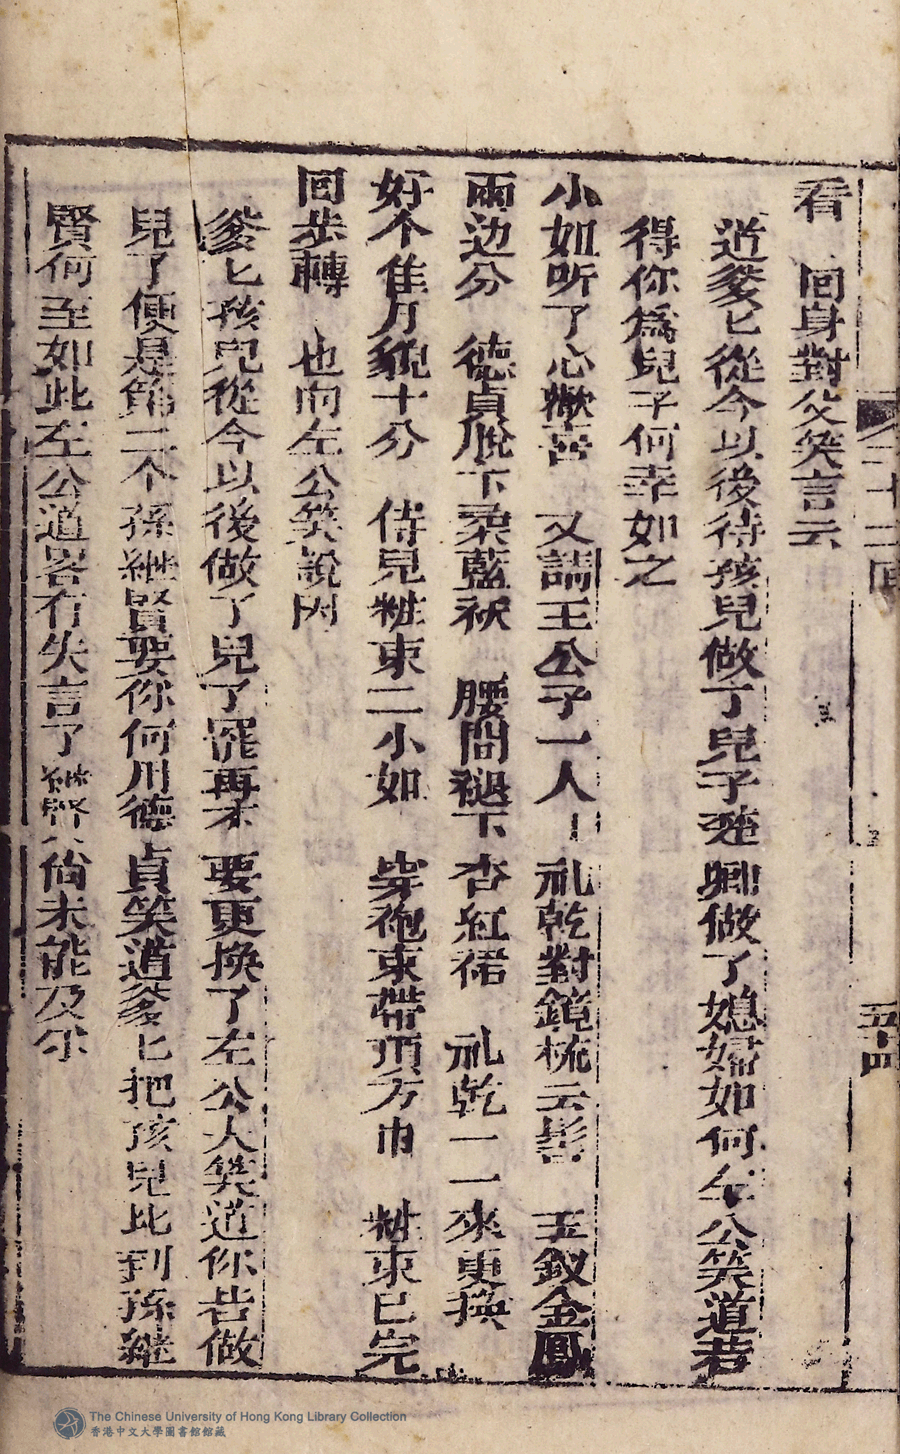 二十二回
五十四
看　回身對父笑言云
道爹匕從今以後待孩兒做了兒子楚卿做了媳婦如何左公笑道若
得你爲兒子何幸如之
小如听了心懒喜　又請王公子一人　礼乾對鏡梳云髟　玉釵金鳳
兩边分　德貞脫下柔藍袄　腰間褪下杏紅裙　礼乾一一來更換
好个隹月貌十分　侍兒粧束二小如　穿袍束帶頂方巾　粧束已完
回步轉　也向左公笑說因
爹匕孩兒從今以後做了兒了罷再不要更換了左公大笑道你若做
兒了便是第二个孫継賢要你何用德貞笑道爹匕把孩兒比到孫継
賢何至如此左公道畧有失言了継賢尚未能及尔
The Chinese University of Hong Kong Library Collection
香港中文大學圖書館館藏